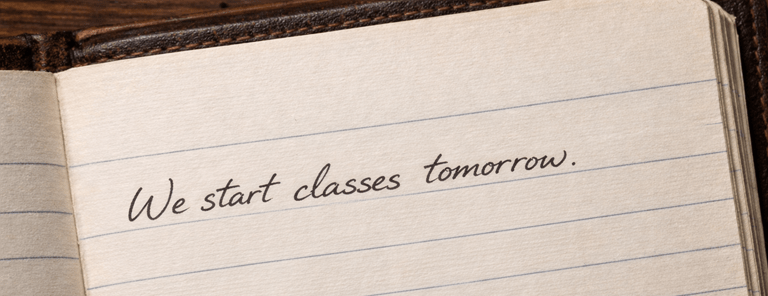 We start classes tomorrow.